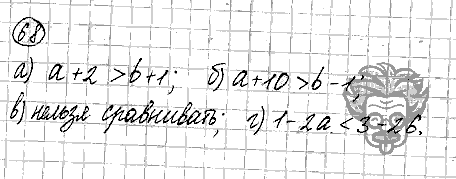 68
а) a+2 > b+1; б) a+10 > b-1;
в) нельзя сравнивать; г) 1-2a < 3-2b.